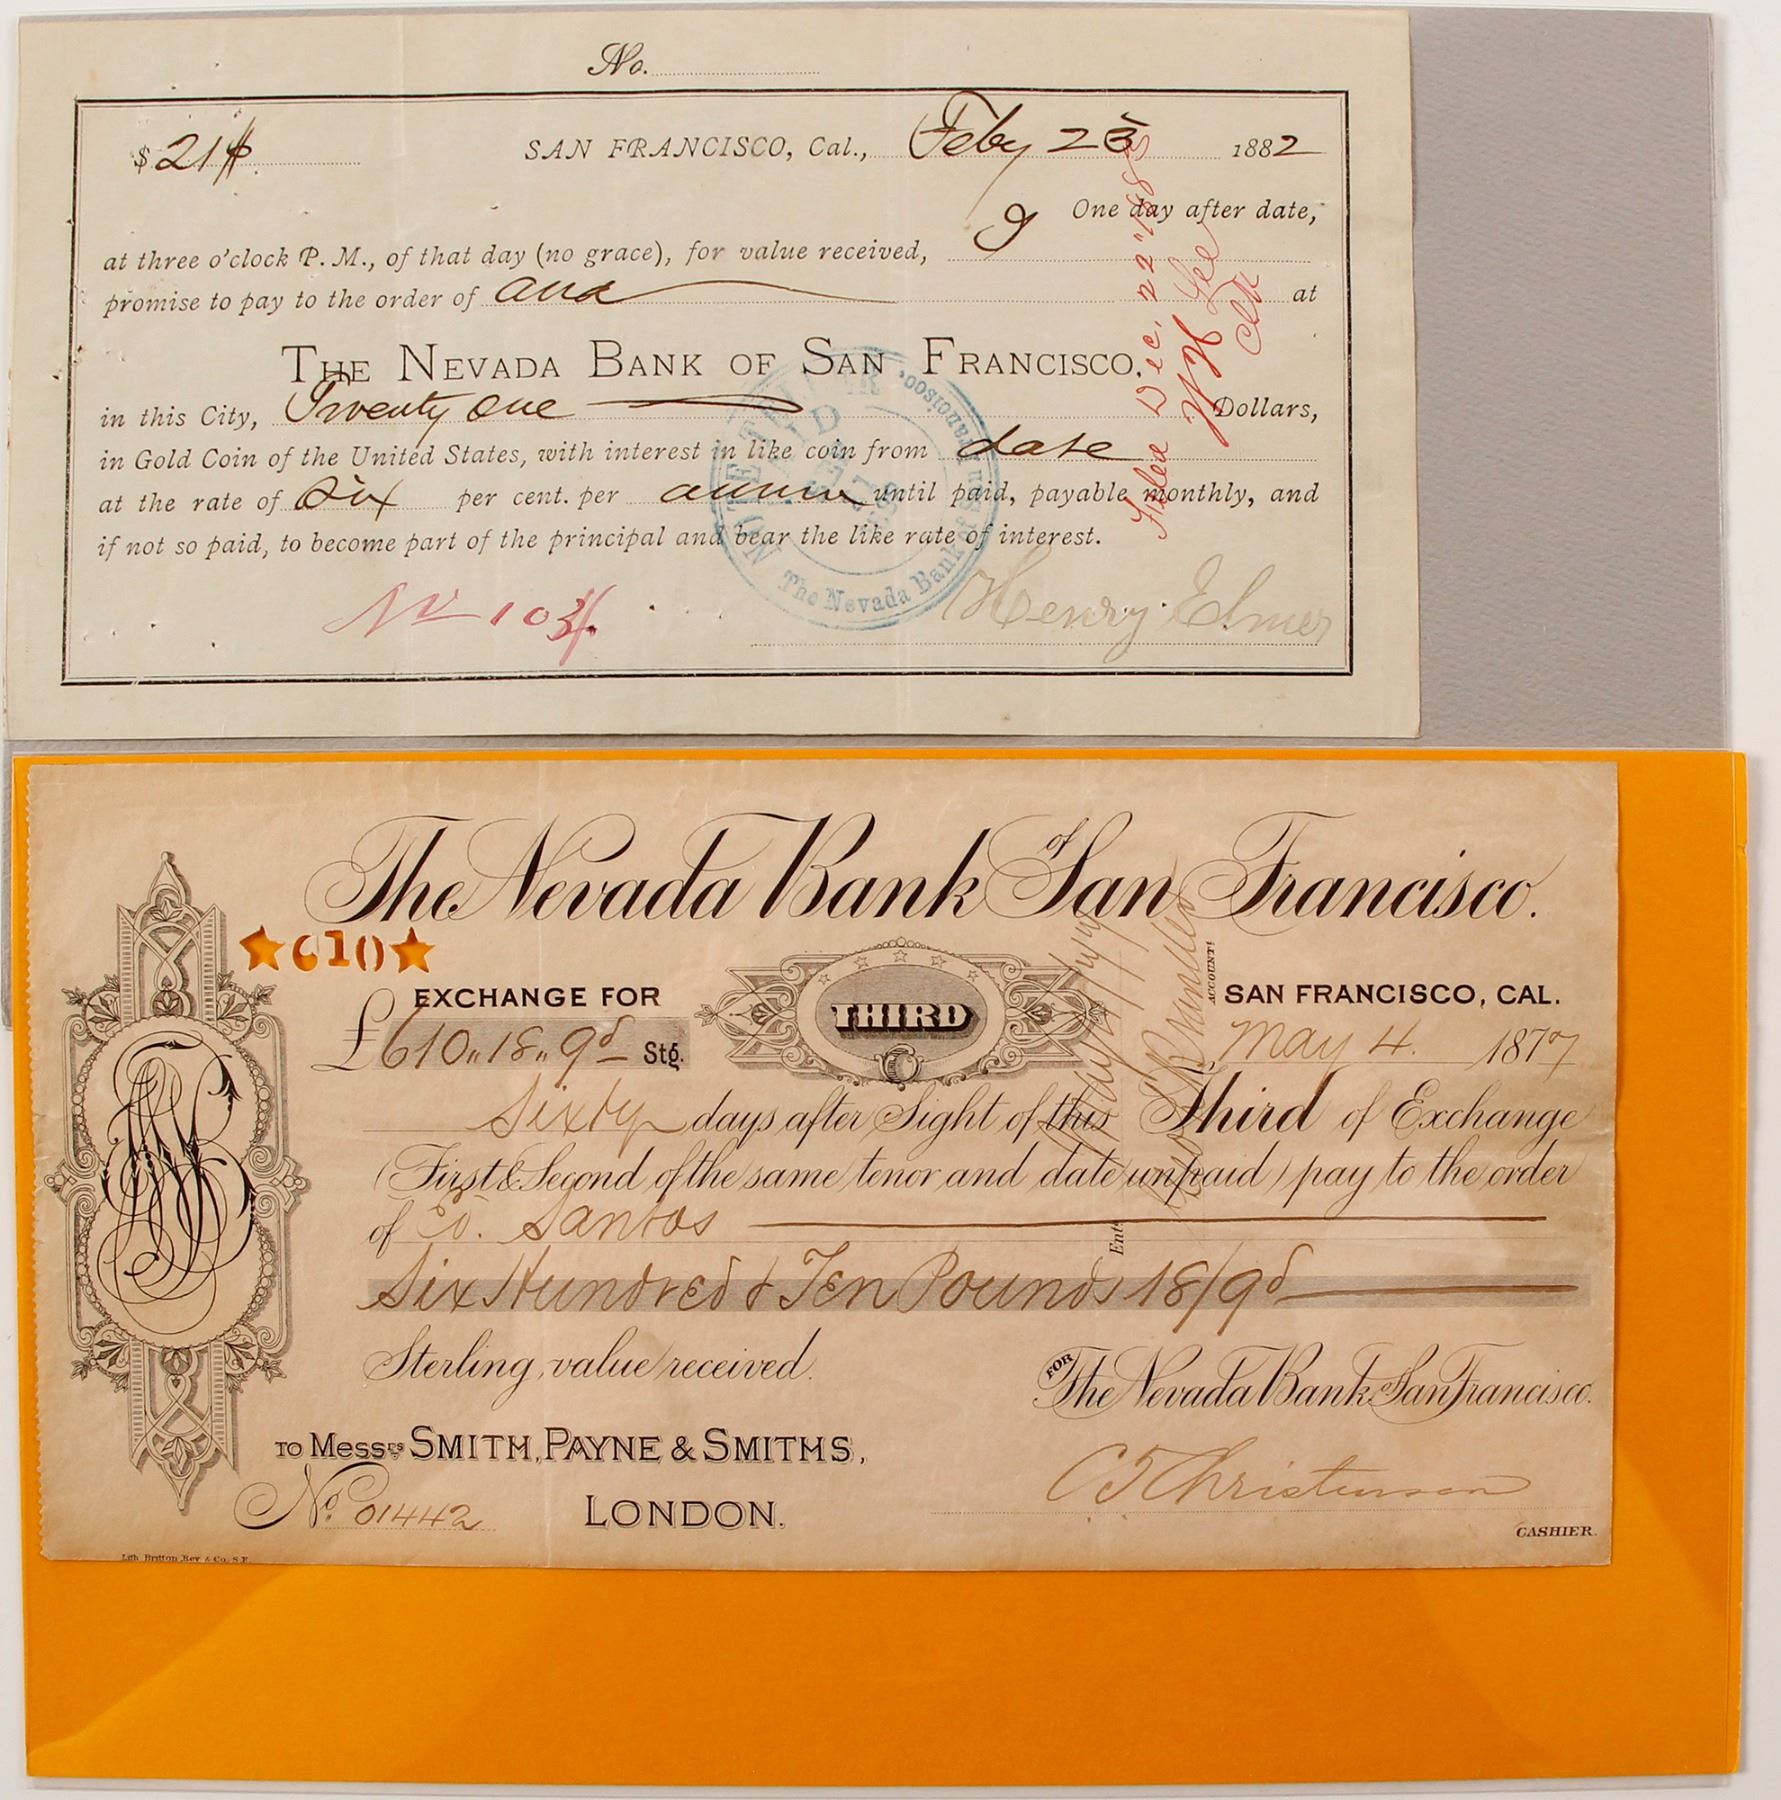 No.
$ 21 SAN FRANCISCO, Cal., Feby 23 1882
I One day after date,
at three o'clock P. M., of that day (no grace), for value received,
promise to pay to the order of at
THE NEVADA BANK OF SAN FRANCISCO,
in this City, Twenty One Dollars,
in Gold Coin of the United States, with interest in like coin from date
at the rate of Six per cent. per annum until paid, payable monthly, and
if not so paid, to become part of the principal and bear the like rate of interest.
Henry Elmer
The Nevada Bank of San Francisco.
Filed Dec. 22
Lee
Clk
The Nevada Bank of San Francisco.
★610★
EXCHANGE FOR
£610.,18.,9d Stg.
THIRD
SAN FRANCISCO, CAL.
May 4. 1877
Sixty days after Sight of this Third of Exchange
(First & Second of the same tenor and date unpaid) pay to the order
of Santos
Six Hundred & Ten Pounds 18/9d
Sterling, value received.
ACCOUNT!
Ent
FOR The Nevada Bank of San Francisco.
TO MESSRS SMITH, PAYNE & SMITHS,
No. 01442 LONDON.
C T Christensen
CASHIER.
Lith. Britton, Rey & Co. S.F.